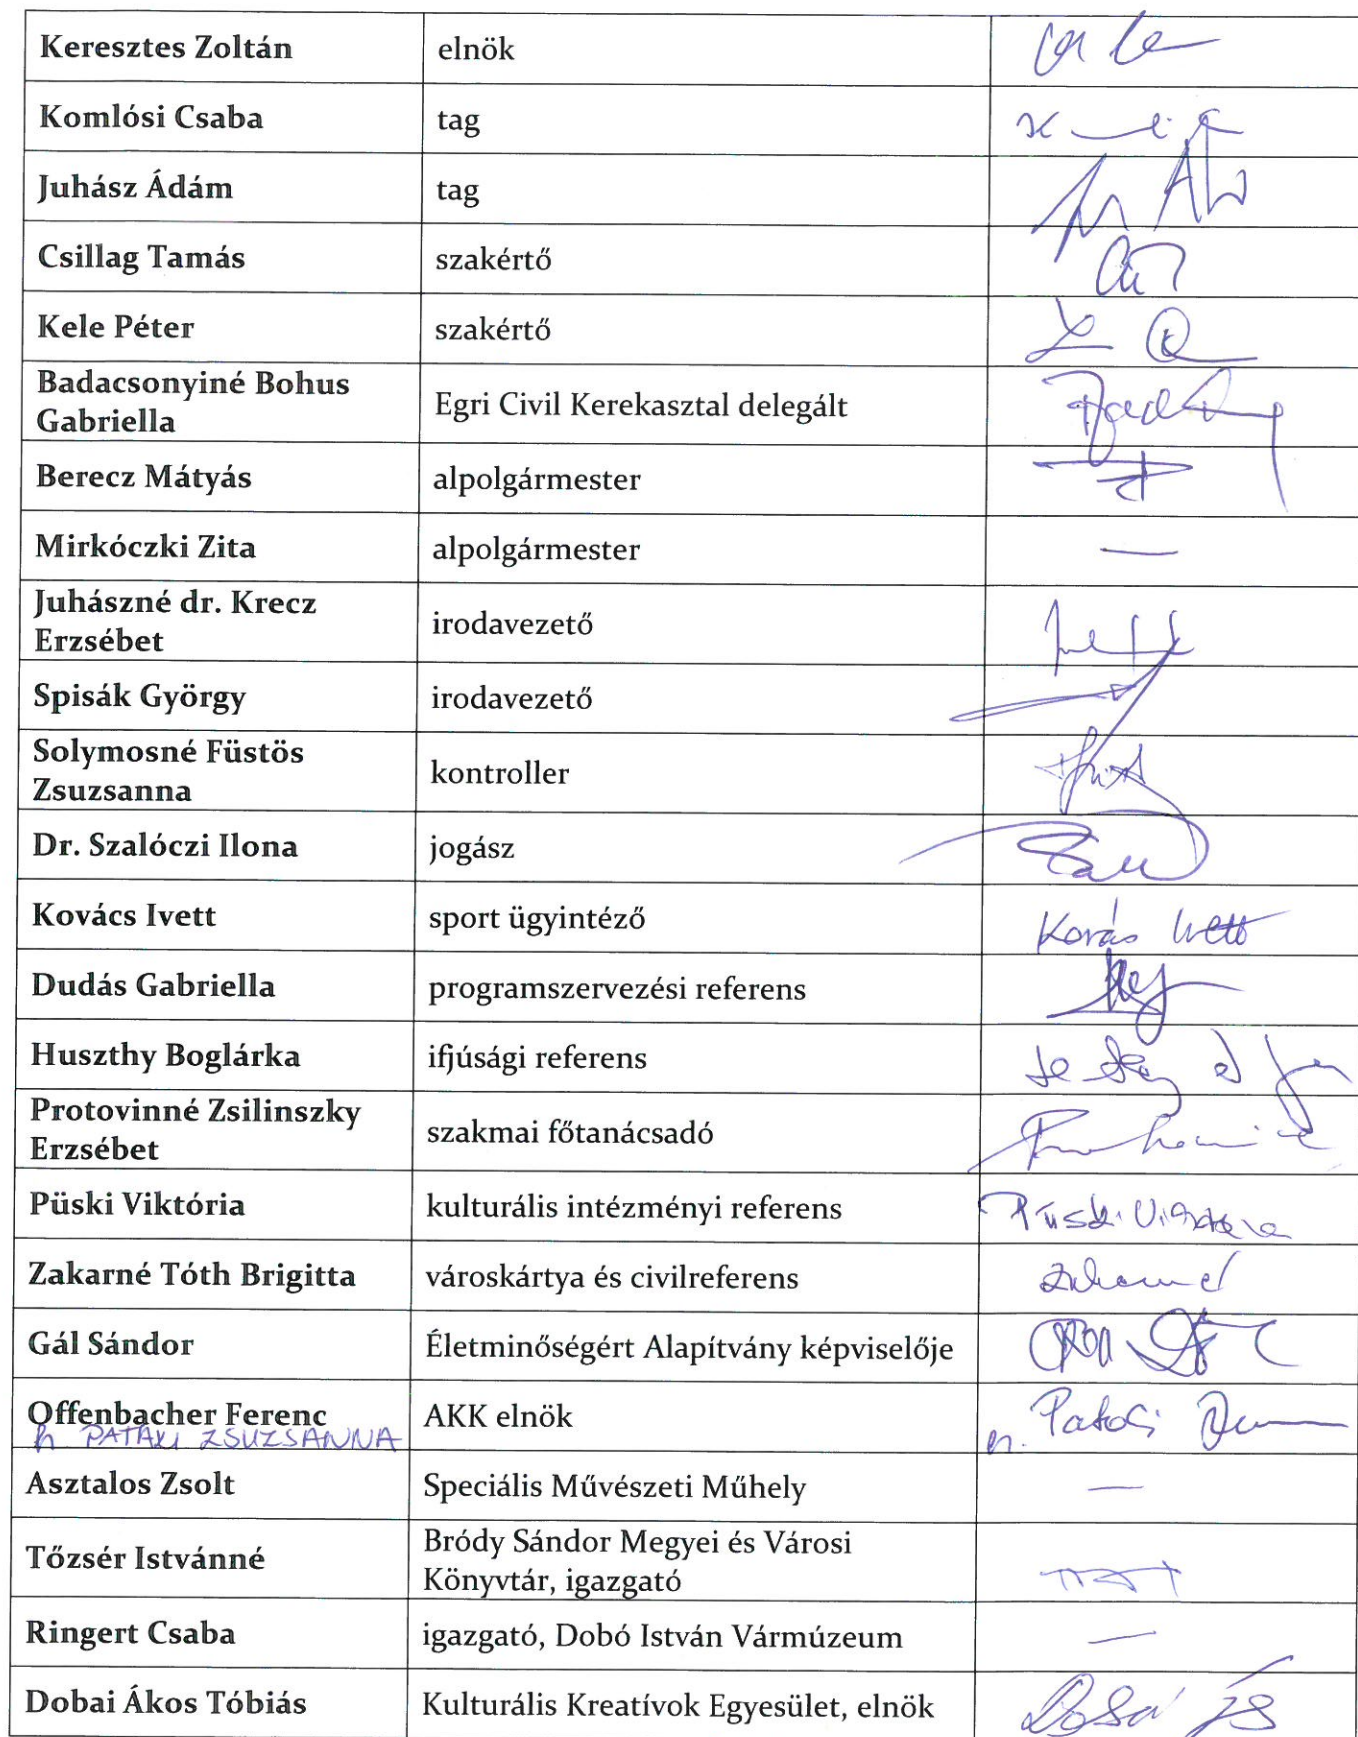 Keresztes Zoltán elnök
Komlósi Csaba tag
Juhász Ádám tag
Csillag Tamás szakértő
Kele Péter szakértő
Badacsonyiné Bohus
Gabriella Egri Civil Kerekasztal delegált
Berecz Mátyás alpolgármester
Mirkóczki Zita alpolgármester —
Juhászné dr. Krecz
Erzsébet irodavezető
Spisák György irodavezető
Solymosné Füstös
Zsuzsanna kontroller
Dr. Szalóczi Ilona jogász
Kovács Ivett sport ügyintéző Kovács Ivett
Dudás Gabriella programszervezési referens
Huszthy Boglárka ifjúsági referens
Protovinné Zsilinszky
Erzsébet szakmai főtanácsadó
Püski Viktória kulturális intézményi referens Püski Viktória
Zakarné Tóth Brigitta városkártya és civilreferens
Gál Sándor Életminőségért Alapítvány képviselője
Offenbacher Ferenc AKK elnök
h PATAKI ZSUZSANNA
Asztalos Zsolt Speciális Művészeti Műhely —
Tőzsér Istvánné Bródy Sándor Megyei és Városi
Könyvtár, igazgató
Ringert Csaba igazgató, Dobó István Vármúzeum —
Dobai Ákos Tóbiás Kulturális Kreatívok Egyesület, elnök